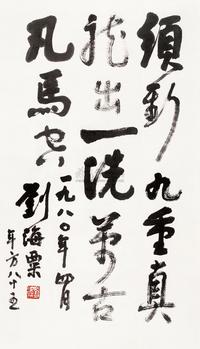 須臾九重真
龍出一洗萬古
凡馬空
一九八〇年四月
劉海粟
年方八十五